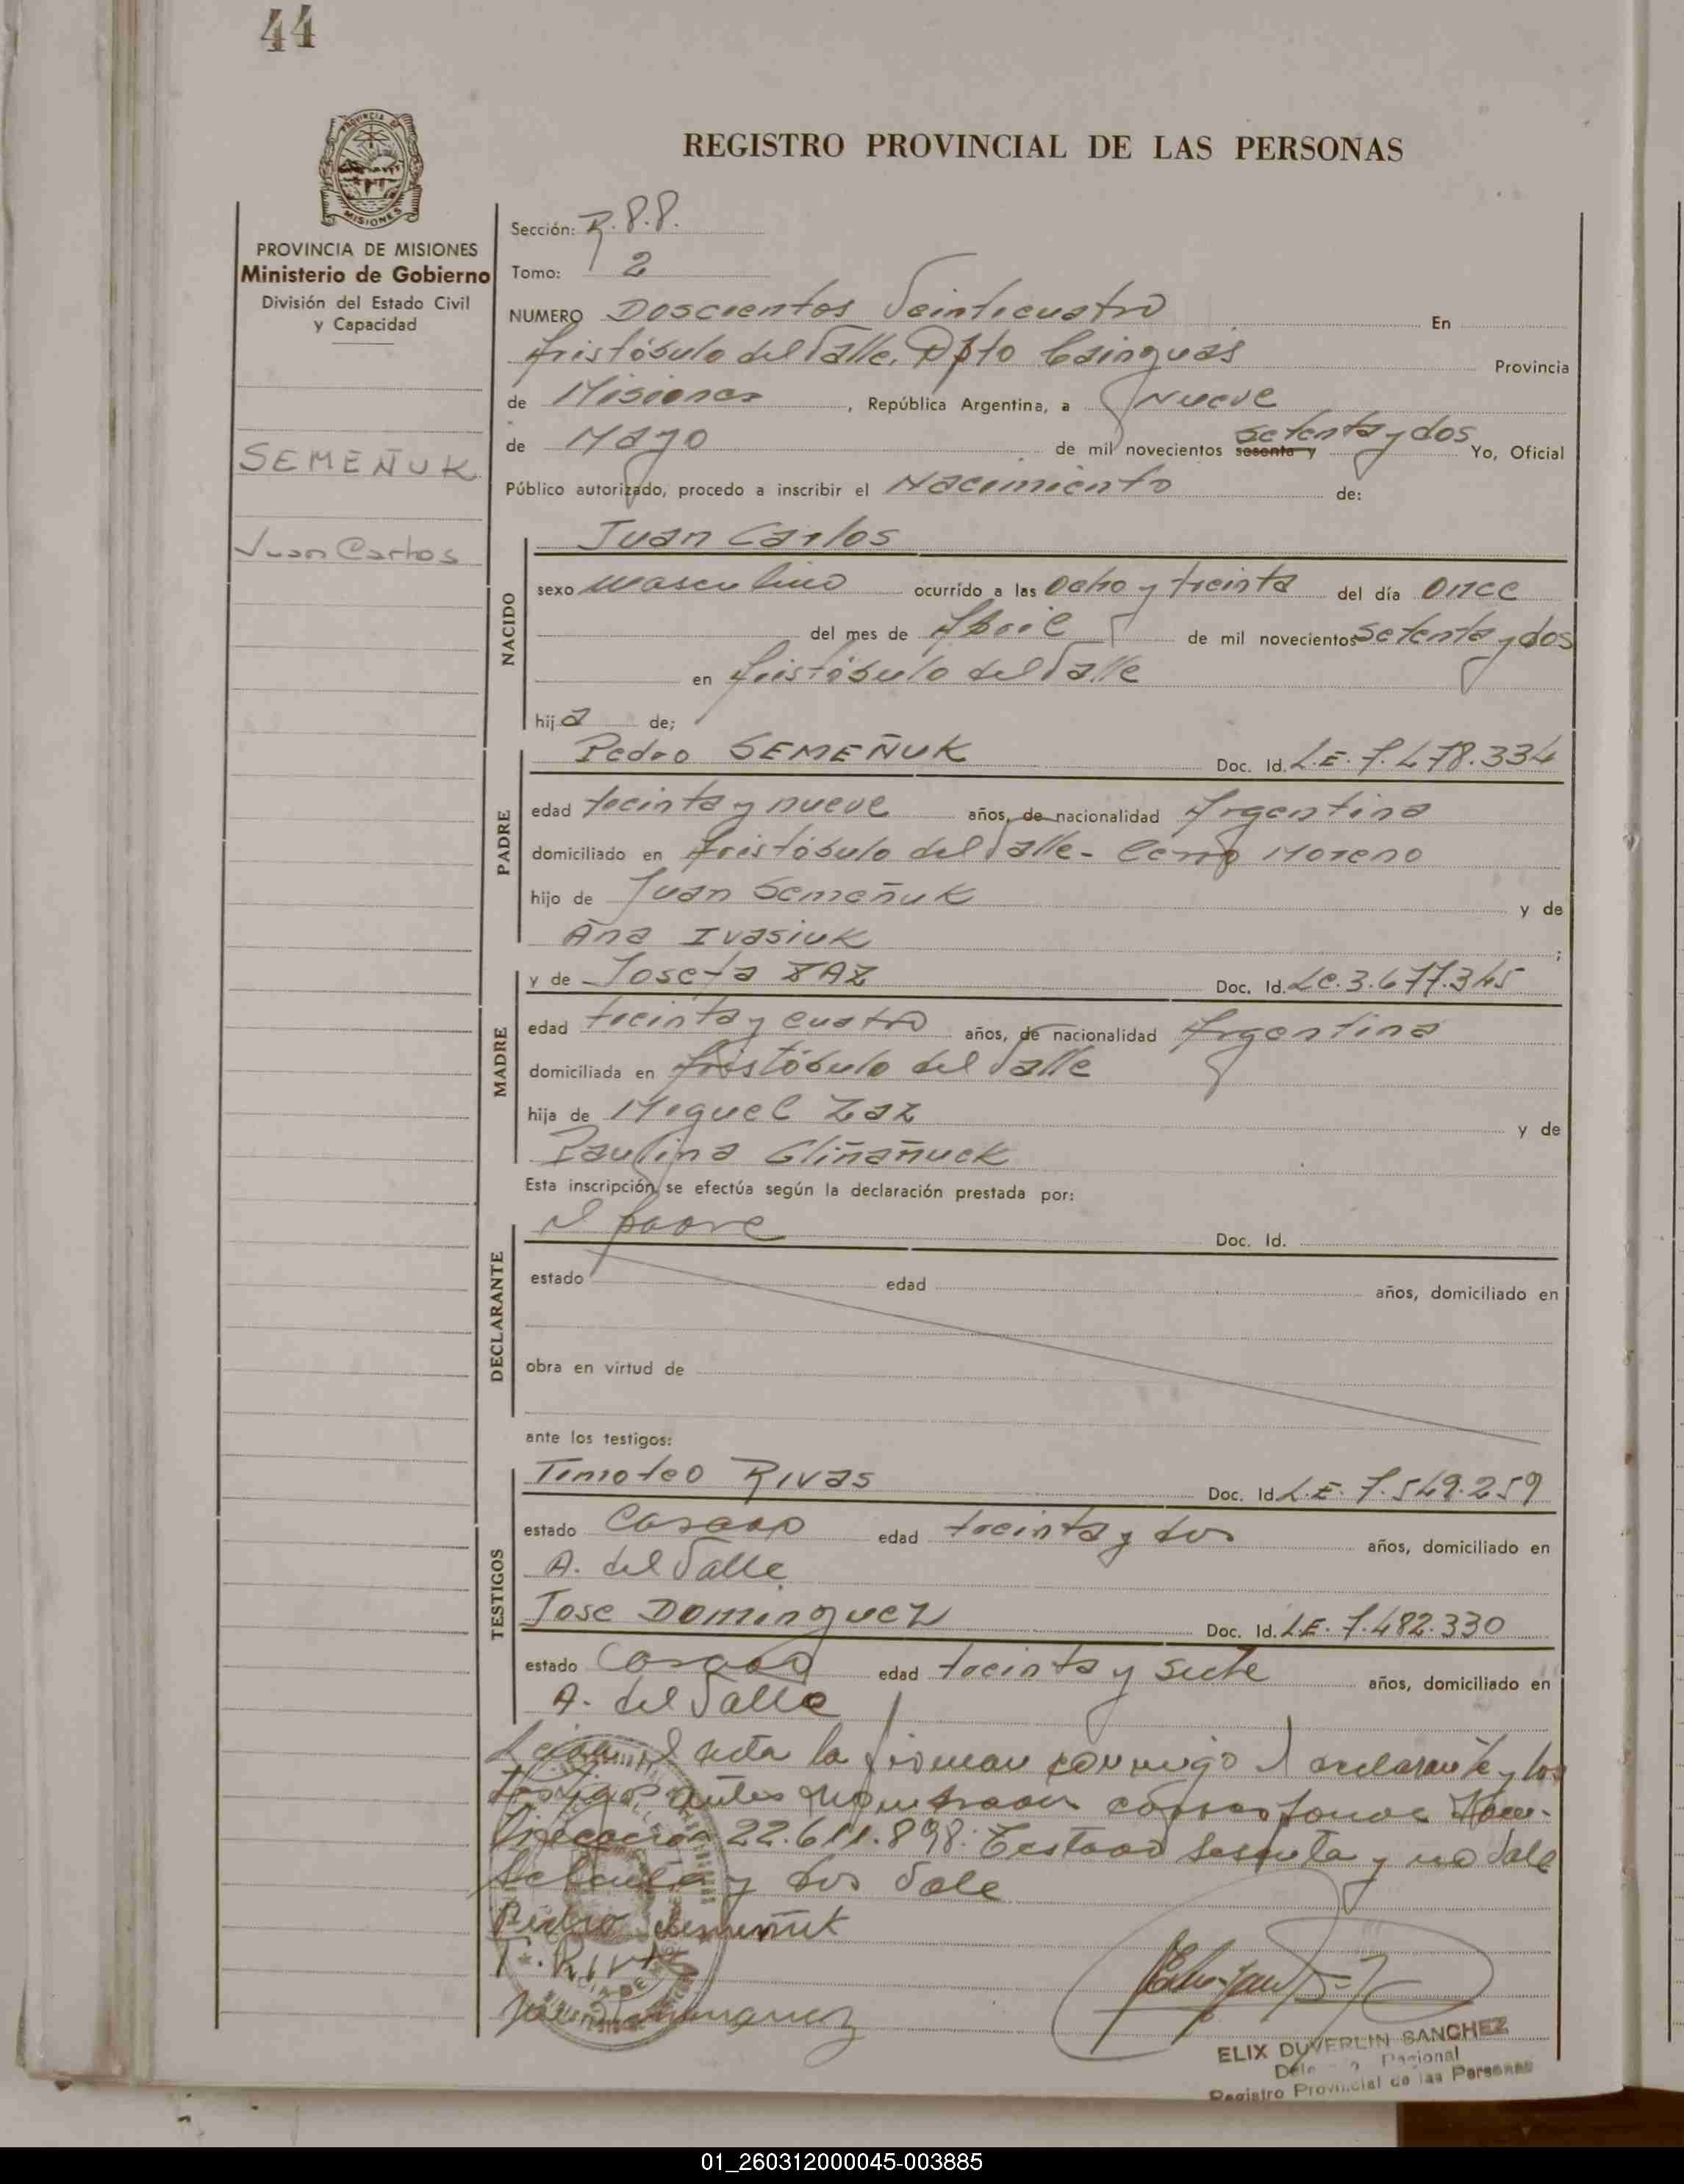 44
REGISTRO PROVINCIAL DE LAS PERSONAS
PROVINCIA DE MISIONES
PROVINCIA DE MISIONES
Ministerio de Gobierno
División del Estado Civil
y Capacidad
SEMEÑUK
Juan Carlos
Sección: R. 88.
Tomo: 2
NUMERO Doscientos Veinticuatro En
Aristóbulo del Valle, Dpto Cainguas Provincia
de Misiones, República Argentina, a Nueve
de Mayo de mil novecientos sesenta y setenta y dos Yo, Oficial
Público autorizado, procedo a inscribir el Nacimiento de:
NACIDO
Juan Carlos
sexo masculino ocurrido a las Ocho y treinta del día Once
del mes de Abril de mil novecientos setenta y dos
en Aristóbulo del Valle
hija de;
PADRE
Pedro SEMEÑUK Doc. Id. L.E. 7.478.334
edad treinta y nueve años, de nacionalidad Argentina
domiciliado en Aristóbulo del Valle - Cerro Moreno
hijo de Juan Semeñuk y de
Ana Ivasiuk ;
MADRE
y de Josefa ZAZ Doc. Id. LC. 3.677.345
edad treinta y cuatro años, de nacionalidad Argentina
domiciliada en Aristóbulo del Valle
hija de Miguel Zaz y de
Paulina Gliñañuck
Esta inscripción se efectúa según la declaración prestada por:
DECLARANTE
el padre Doc. Id.
estado edad años, domiciliado en
obra en virtud de
ante los testigos:
TESTIGOS
Timoteo Rivas Doc. Id. L.E. 7.549.259
estado Casado edad treinta y dos años, domiciliado en
A. del Valle
Jose Dominguez Doc. Id. L.E. 7.482.330
estado Casado edad treinta y siete años, domiciliado en
A. del Valle
Leída el acta la firman conmigo el declarante y los
testigos antes nombrados 
22.611.898. Testado sesenta y no Vale
setenta y dos Vale
Pedro Semeñuk
T. Rivas
Dominguez
ELIX DUVERLIN SANCHEZ
Regional
Registro Provincial de las Personas
01_260312000045-003885